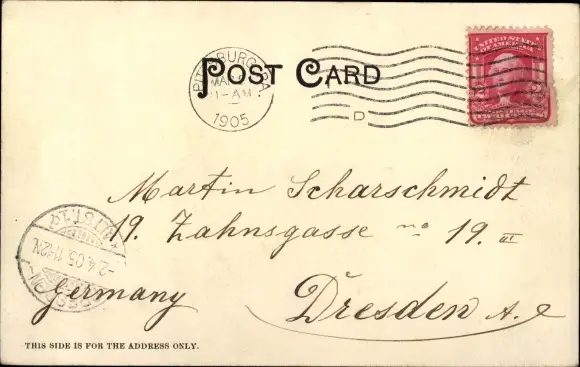 POST CARD
PITTSBURG, PA
MAR
1-AM
1905
D
UNITED STATES
OF AMERICA
2 2
TWO CENTS
Martin Scharschmidt
19. Zahnsgasse no 19. III
Germany Dresden A. e
ALTST. 19
-2.4.05. 11-12N.
DRESDEN
THIS SIDE IS FOR THE ADDRESS ONLY.